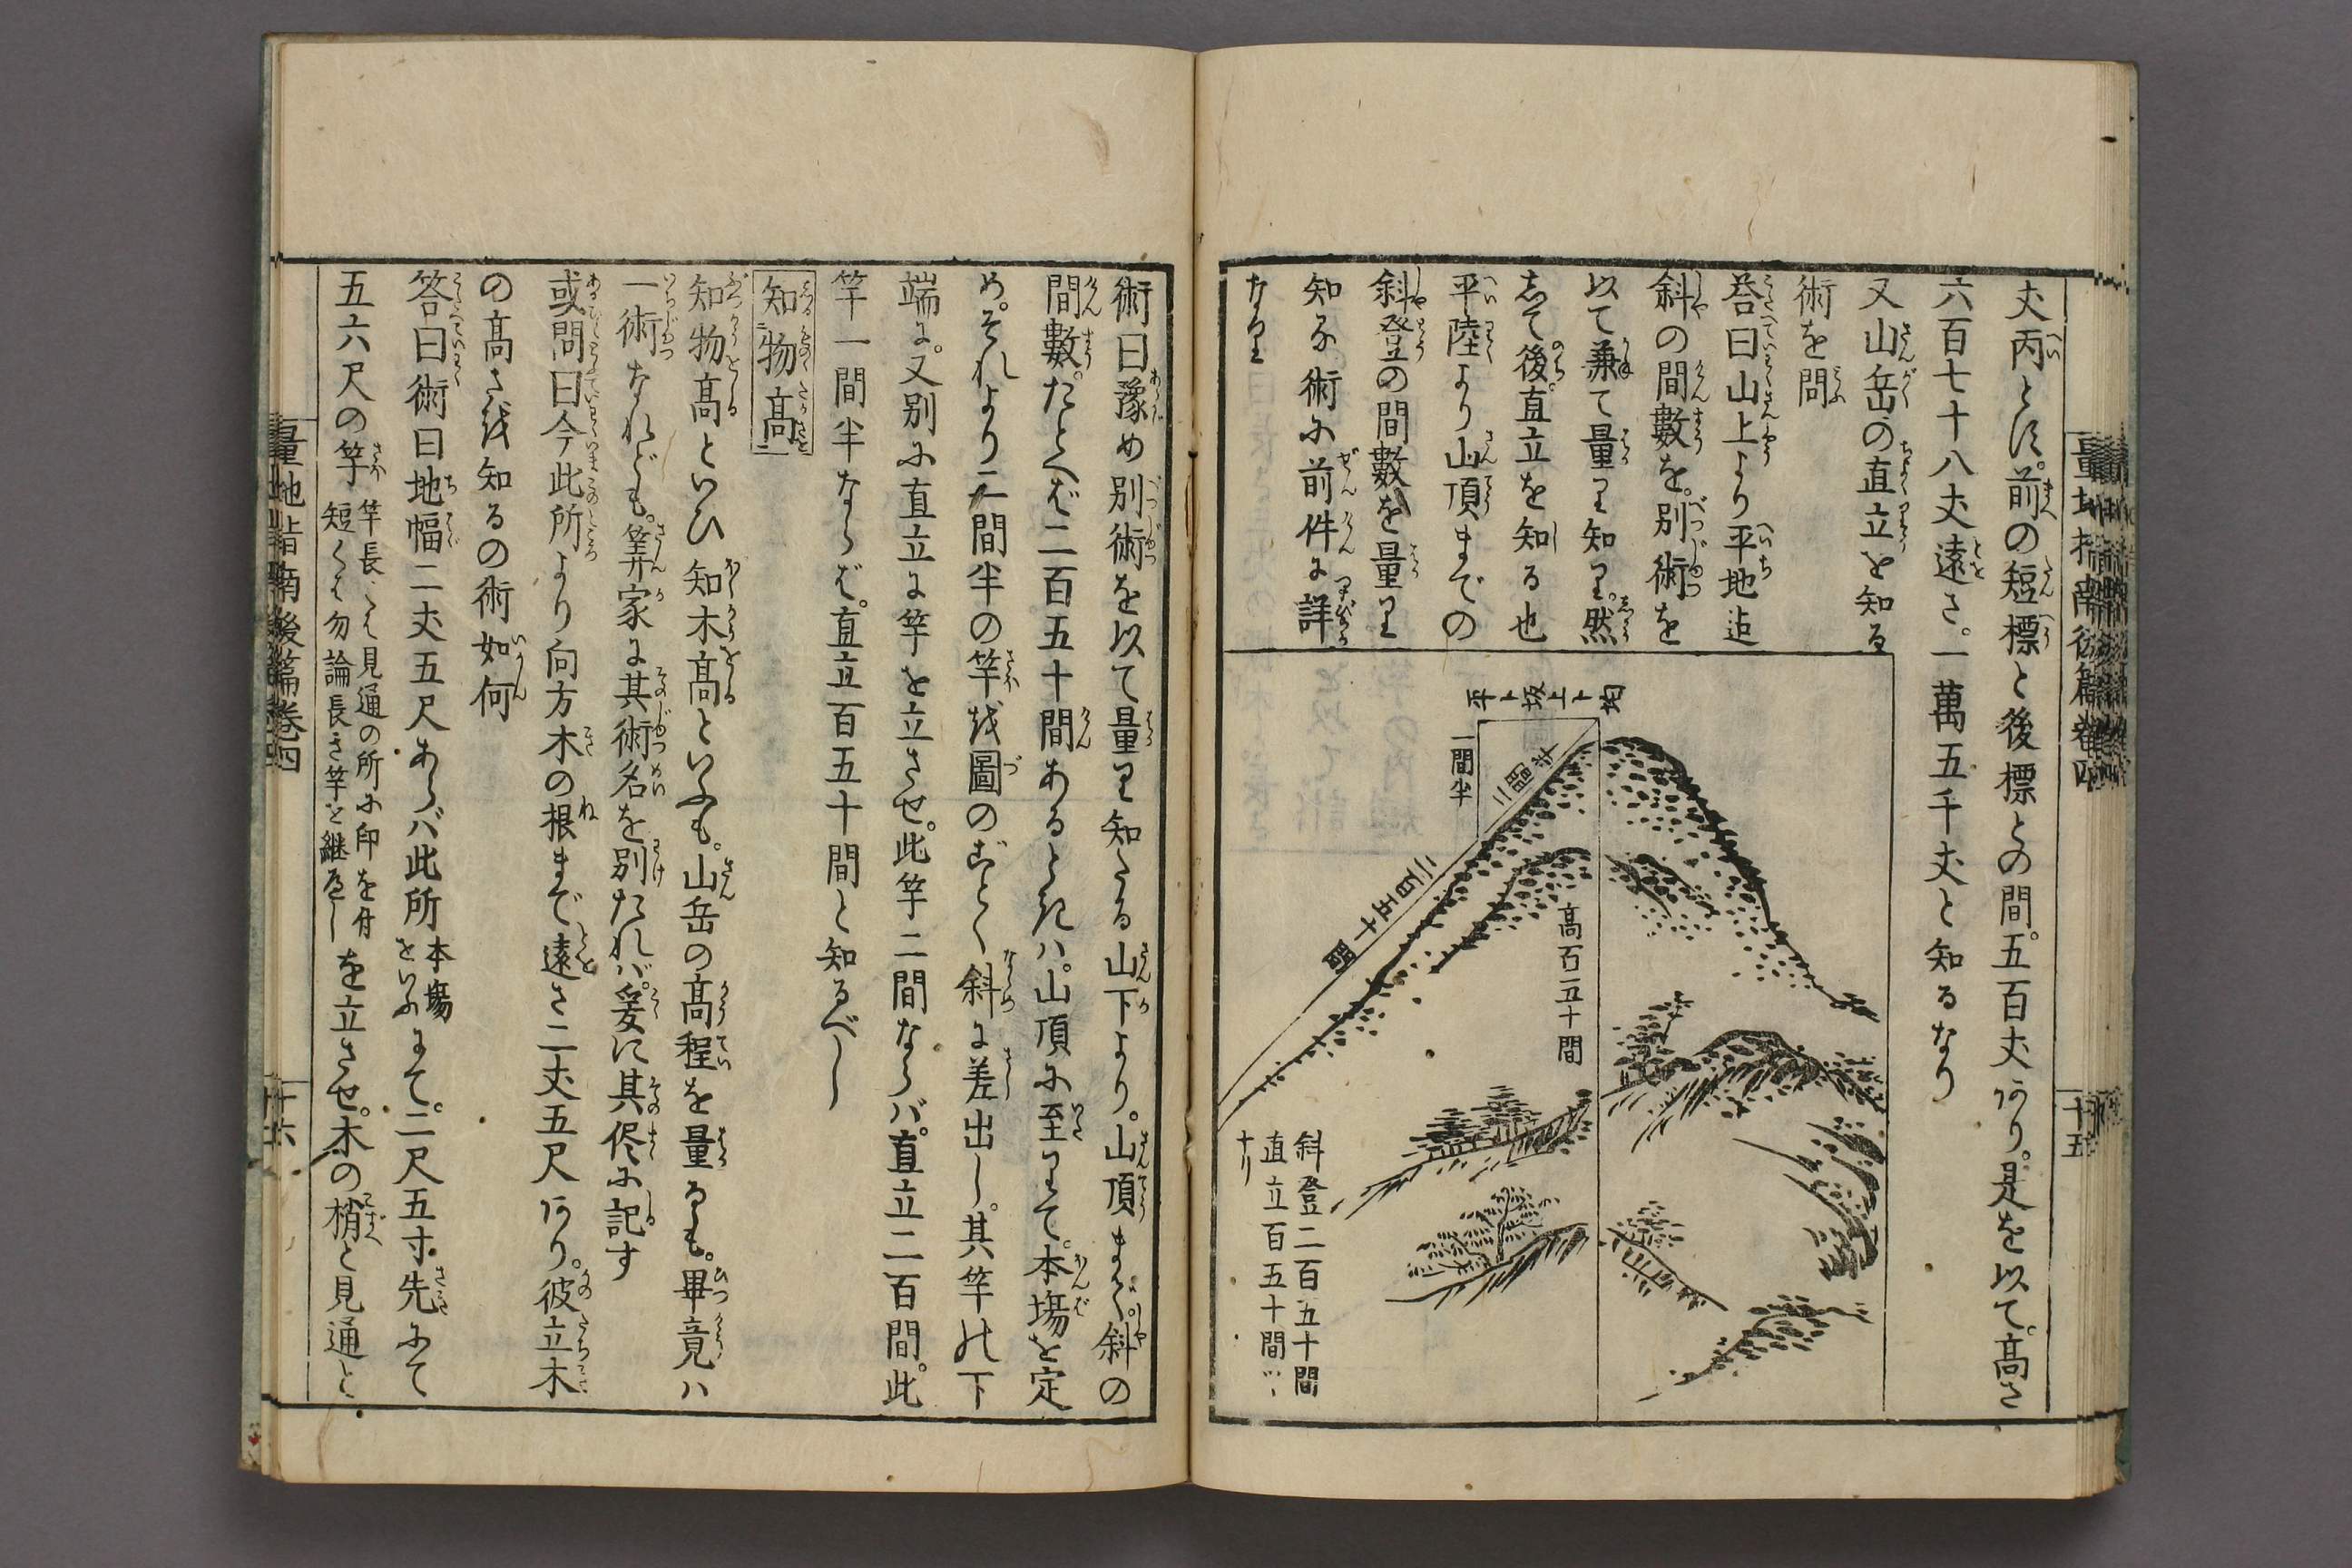 丈丙とす。前の短標と後標との間。五百丈あり。是を以て。高さ
六百七十八丈遠さ。一萬五千丈と知るなり
又山岳の直立を知る
術を問
答曰山上より平地迄
斜の間數を。別術を
以て兼て量り知り。然
して後。直立を知る也
平陸より山頂までの
斜登の間數を量り
知る術は前件に詳
なり
一間半
二百五十間
高百五十間
斜登二百五十間
直立百五十間
ナリ
量地指南後篇卷四
十五
術曰豫め別術を以て量り知たる山下より。山頂まで斜の
間數。たとへば二百五十間あるときハ。山頂に至りて。本塲を定
め。それより二間半の竿を圖のごとく斜に差出し。其竿の下
端に。又別に直立に竿を立させ。此竿二間ならバ。直立二百間。此
竿一間半ならば。直立百五十間と知るべし
知物高
知物高といひ知木高といふも。山岳の高程を量るも。畢竟ハ
一術なれども。筭家に其術名を別たれバ。爰に其侭に記す
或問曰今此所より向方木の根まで遠さ二丈五尺あり。彼立木
の高さを知るの術如何
答曰術曰地幅二丈五尺あらバ此所本塲をいふにて。二尺五寸先にて
五六尺の竿竿長くは見通の所に印を付短くは勿論長き竿を継べしを立させ。木の梢と見通と
量地指南後篇卷四
十六